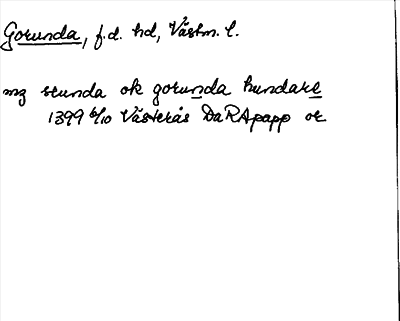 Gorunda, f.d. hd, Västm. l.
mz seunda ok gorunda hundare
1399 6/10 Västerås DaRApapp or